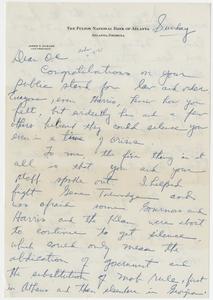 THE FULTON NATIONAL BANK OF ATLANTA
ATLANTA, GEORGIA
Sunday
Dear
Congratulations on your
public stand for law and order
Everyone, even Harris, knew how you
felt, but evidently he and a few
others believed they could silence you
even in a time of crisis.
To me the fine thing in it
all is that you and your
staff spoke out. I helped
fight Gene Talmadge and
was afraid some Governor and
Harris and the Klan were about
to continue to get silence
which could only mean the
abdication of government and
the substitution of mob rule, first
in Athens and then elsewhere in Georgia.